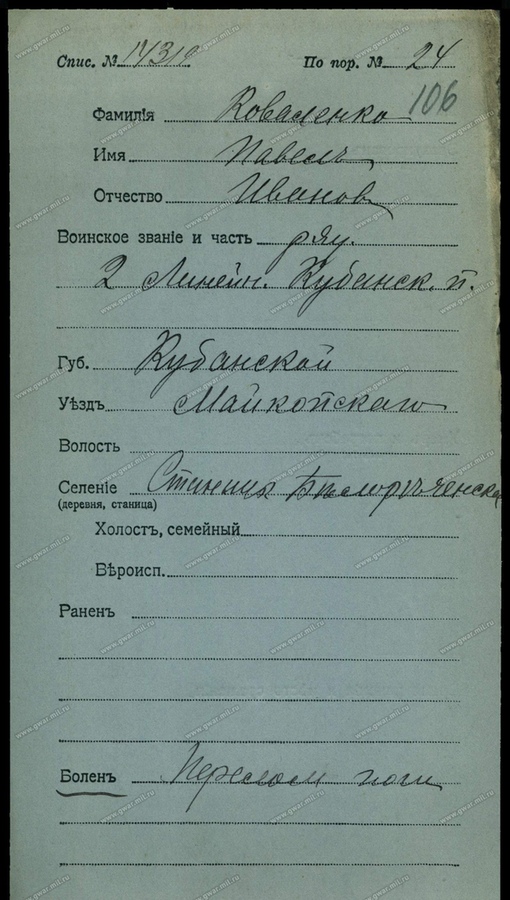 Спис. № 14319 По пор. № 24
106
Фамилія Коваленко
Имя Павелъ
Отчество Иванов
Воинское званіе и часть ряд.
2 Линейн. Кубанск. п.
Губ. Кубанской
Уѣздъ Майкопскаго
Волость
Селеніе Станица Бѣлорѣченская
(деревня, станица)
Холостъ, семейный
Вѣроисп.
Раненъ
Боленъ Перелом ноги
www.gwar.mil.ru